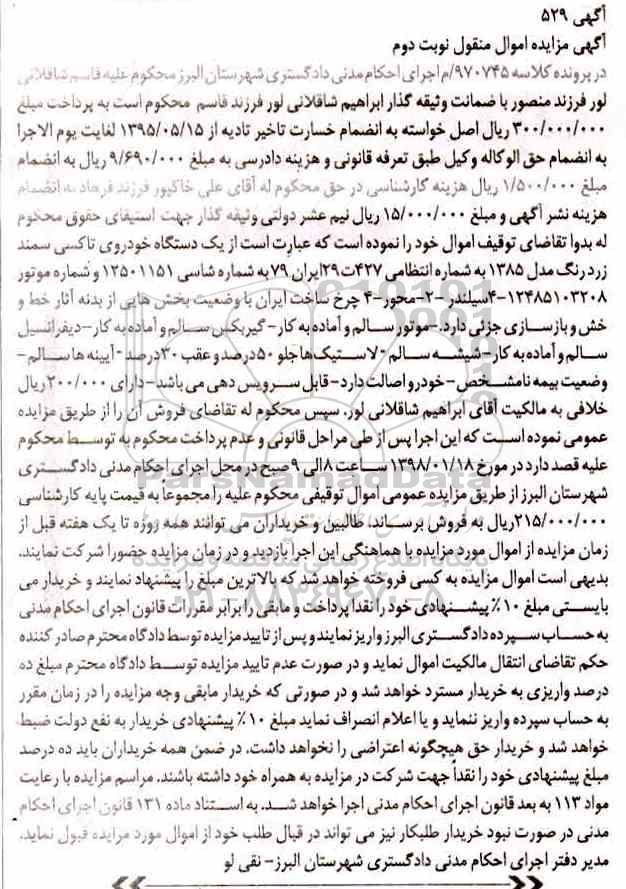 آگهی ۵۲۹
آگهی مزایده اموال منقول نوبت دوم
در پرونده کلاسه ۹۷۰۷۴۵/م اجرای احکام مدنی دادگستری شهرستان البرز محکوم علیه قاسم شاقلانی
لور فرزند منصور با ضمانت وثیقه گذار ابراهیم شاقلانی لور فرزند قاسم محکوم است به پرداخت مبلغ
۳۰۰/۰۰۰/۰۰۰ ریال اصل خواسته به انضمام خسارت تاخیر تادیه از ۱۳۹۵/۰۵/۱۵ لغایت یوم الاجرا
به انضمام حق الوکاله وکیل طبق تعرفه قانونی و هزینه دادرسی به مبلغ ۹/۶۹۰/۰۰۰ ریال به انضمام
مبلغ ۱/۵۰۰/۰۰۰ ریال هزینه کارشناسی در حق محکوم له آقای علی خاکپور فرزند فرهاد به انضمام
هزینه نشر آگهی و مبلغ ۱۵/۰۰۰/۰۰۰ ریال نیم عشر دولتی وثیقه گذار جهت استیفای حقوق محکوم
له بدوا تقاضای توقیف اموال خود را نموده است که عبارت است از یک دستگاه خودروی تاکسی سمند
زرد رنگ مدل ۱۳۸۵ به شماره انتظامی ۴۲۷ت۲۹ایران ۷۹ به شماره شاسی ۱۲۵۰۱۱۵۱ و شماره موتور
۱۲۴۸۵۱۰۳۲۰۸-۴سیلندر -۲-محور-۴ چرخ ساخت ایران با وضعیت بخش هایی از بدنه آثار خط و
خش و بازسازی جزئی دارد.-موتور سالم و آماده به کار-گیربکس سالم و آماده به کار-دیفرانسیل
سالم و آماده به کار-شیشه سالم -لاستیک ها جلو ۵۰درصد و عقب ۳۰درصد -آیینه ها سالم-
وضعیت بیمه نامشخص-خودرو اصالت دارد-قابل سرویس دهی می باشد-دارای ۲۰۰/۰۰۰ریال
خلافی به مالکیت آقای ابراهیم شاقلانی لور. سپس محکوم له تقاضای فروش آن را از طریق مزایده
عمومی نموده است که این اجرا پس از طی مراحل قانونی و عدم پرداخت محکوم به توسط محکوم
علیه قصد دارد در مورخ ۱۳۹۸/۰۱/۱۸ ساعت ۸الی ۹ صبح در محل اجرای احکام مدنی دادگستری
شهرستان البرز از طریق مزایده عمومی اموال توقیفی محکوم علیه را مجموعاً به قیمت پایه کارشناسی
۲۱۵/۰۰۰/۰۰۰ریال به فروش برساند، طالبین و خریداران می توانند همه روزه تا یک هفته قبل از
زمان مزایده از اموال مورد مزایده با هماهنگی این اجرا بازدید و در زمان مزایده حضورا شرکت نمایند.
بدیهی است اموال مزایده به کسی فروخته خواهد شد که بالاترین مبلغ را پیشنهاد نمایند و خریدار می
بایستی مبلغ ۱۰٪ پیشنهادی خود را نقدا پرداخت و مابقی را برابر مقررات قانون اجرای احکام مدنی
به حساب سپرده دادگستری البرز واریز نمایند و پس از تایید مزایده توسط دادگاه محترم صادر کننده
حکم تقاضای انتقال مالکیت اموال نماید و در صورت عدم تایید مزایده توسط دادگاه محترم مبلغ ده
درصد واریزی به خریدار مسترد خواهد شد و در صورتی که خریدار مابقی وجه مزایده را در زمان مقرر
به حساب سپرده واریز ننماید و یا اعلام انصراف نماید مبلغ ۱۰٪ پیشنهادی خریدار به نفع دولت ضبط
خواهد شد و خریدار حق هیچگونه اعتراضی را نخواهد داشت. در ضمن همه خریداران باید ده درصد
مبلغ پیشنهادی خود را نقداً جهت شرکت در مزایده به همراه خود داشته باشند. مراسم مزایده با رعایت
مواد ۱۱۳ به بعد قانون اجرای احکام مدنی اجرا خواهد شد. به استناد ماده ۱۳۱ قانون اجرای احکام
مدنی در صورت نبود خریدار طلبکار نیز می تواند در قبال طلب خود از اموال مورد مزایده قبول نماید.
مدیر دفتر اجرای احکام مدنی دادگستری شهرستان البرز- نقی لو
ParsNamadData